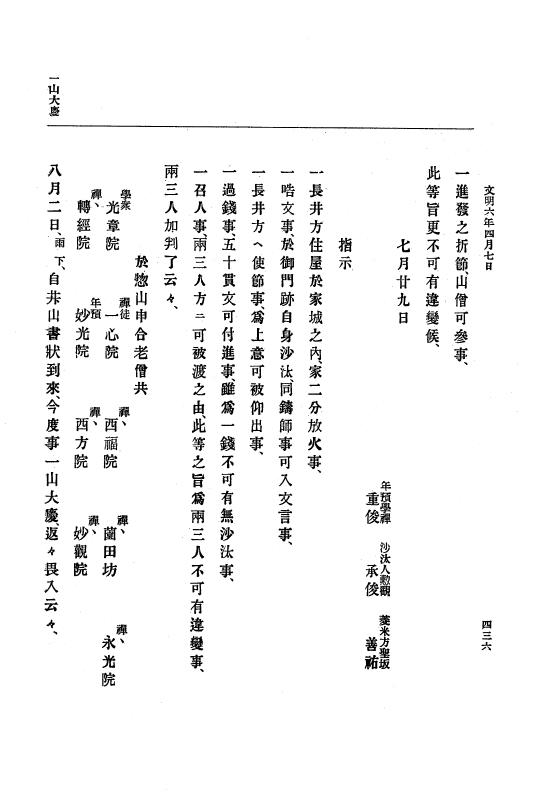 文明六年四月七日
四三六
一進發之折節、山僧可參事、
此等旨更不可有違變候、
七月廿九日
年預學禪 重俊
沙汰人勲觀 承俊
菱米方聖坂 善祐
指示
一長井方住屋於家城之內、家二分放火事、
一誥文事、於御門跡自身沙汰、同鑄師事可入文言事、
一長井方へ使節事、爲上意可被仰出事、
一過錢事、五十貫文可付進事、雖爲一錢不可有無沙汰事、
一召人事、兩三人方ニ可被渡之由、此等之旨爲兩三人不可有違變事、
兩三人加判了云々、
於惣山申合老僧共
學衆 光章院
禪徒 一心院
禪、 西福院
禪、 蘭田坊
禪、 永光院
禪、 轉經院
年預 妙光院
禪、 西方院
禪、 妙觀院
八月二日、雨下、自井山書狀到來、今度事一山大慶、返々畏入云々、
一山大慶